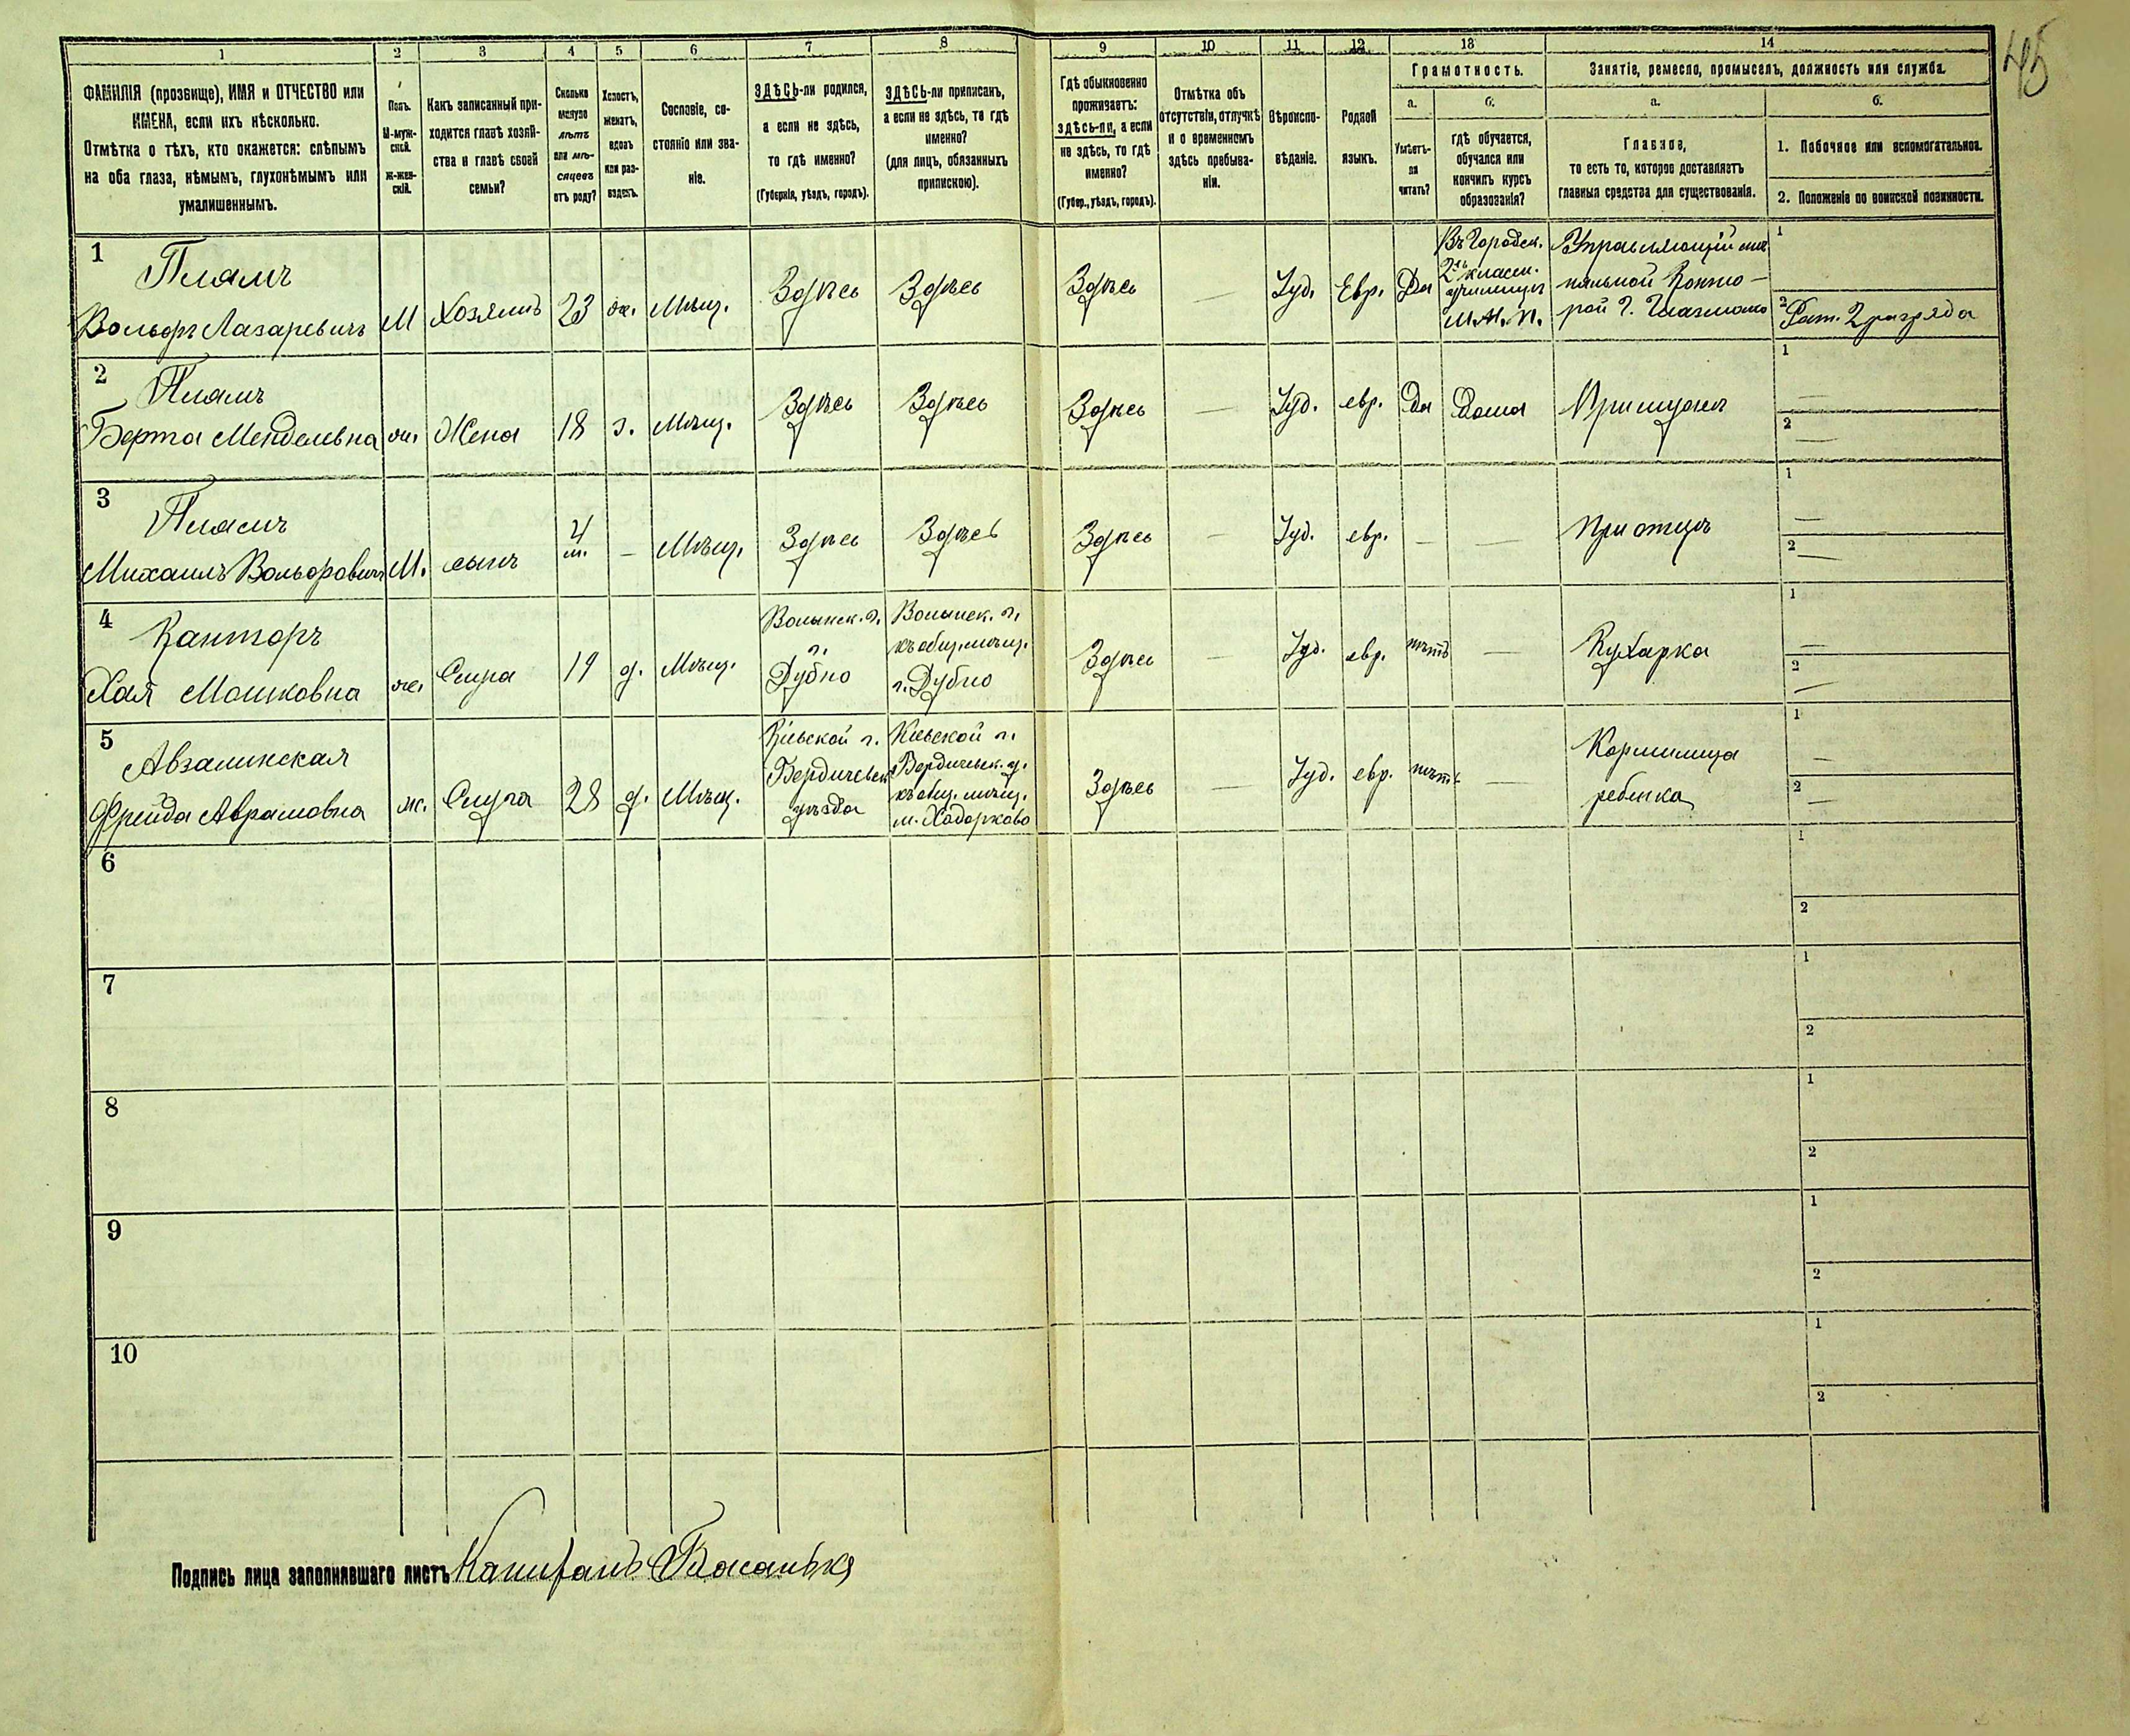 45
1 2 3 4 5 6 7 8 9 10 11 12 13 14
ФАМИЛІЯ (прозвище), ИМЯ и ОТЧЕСТВО или
ИМЕНА, если ихъ нѣсколько.
Отмѣтка о тѣхъ, кто окажется: слѣпымъ
на оба глаза, нѣмымъ, глухонѣмымъ или
умалишеннымъ.
Полъ.
М-муж-
ской.
Ж-жен-
скій.
Какъ записанный при-
ходится главѣ хозяй-
ства и главѣ своей
семьи?
Сколько
минуло
лѣтъ
или мѣ-
сяцевъ
отъ роду?
Холостъ,
женатъ,
вдовъ
или раз-
веденъ.
Сословіе, со-
стояніе или зва-
ніе.
ЗДѢСЬ-ли родился,
а если не здѣсь,
то гдѣ именно?
(Губернія, уѣздъ, городъ).
ЗДѢСЬ-ли приписанъ,
а если не здѣсь, то гдѣ
именно?
(для лицъ, обязанныхъ
припискою).
Гдѣ обыкновенно
проживаетъ:
здѣсь-ли, а если
не здѣсь, то гдѣ
именно?
(Губер., уѣздъ, городъ).
Отмѣтка объ
отсутствіи, отлучкѣ
и о временномъ
здѣсь пребыва-
ніи.
Вѣроиспо-
вѣданіе.
Родной
языкъ.
Грамотность.
а. б.
Умѣетъ-
ли
читать?
гдѣ обучается,
обучался или
кончилъ курсъ
образованія?
Занятіе, ремесло, промыселъ, должность или служба.
а. б.
Главное,
то есть то, которое доставляетъ
главныя средства для существованія.
1. Побочное или вспомогательное.
2. Положеніе по воинской повинности.
1
Плямъ
Вольфъ Лазаревичъ
М
Хозяинъ
23
ж.
Мѣщ.
Здѣсь
Здѣсь
Здѣсь
—
Іуд.
Евр.
Да
Въ Городск.
2хъ классн.
училищѣ
М. Н. П.
Управляющій
Конто-
рой Г.
1
2 Рат. 2 разряда
2
Плямъ
Берта Менделевна
ж.
Жена
18
з.
Мѣщ.
Здѣсь
Здѣсь
Здѣсь
—
Іуд.
евр.
Да
Дома
При мужѣ
1 —
2 —
3
Плямъ
Михаилъ Вольфовичъ
М.
сынъ
4
м.
—
Мѣщ.
Здѣсь
Здѣсь
Здѣсь
—
Іуд.
евр.
—
—
При отцѣ
1 —
2 —
4
Канторъ
Хая Мошковна
ж.
Слуга
19
д.
Мѣщ.
Волынск. г.
г.
Дубно
Волынск. г.
къ общ. мѣщ.
г. Дубно
Здѣсь
—
Іуд.
евр.
нѣтъ
—
Кухарка
1 —
2 —
5
Авзалинская
Фрейда Аврамовна
ж.
Слуга
28
д.
Мѣщ.
Кіевской г.
Бердичевск.
уѣзда
Кіевской г.
Бердичевск. у.
къ общ. мѣщ.
м. Ходорково
Здѣсь
—
Іуд.
евр.
нѣтъ
—
Кормилица
ребенка
1 —
2 —
6
1
2
7
1
2
8
1
2
9
1
2
10
1
2
Подпись лица заполнявшаго листъ Капитанъ